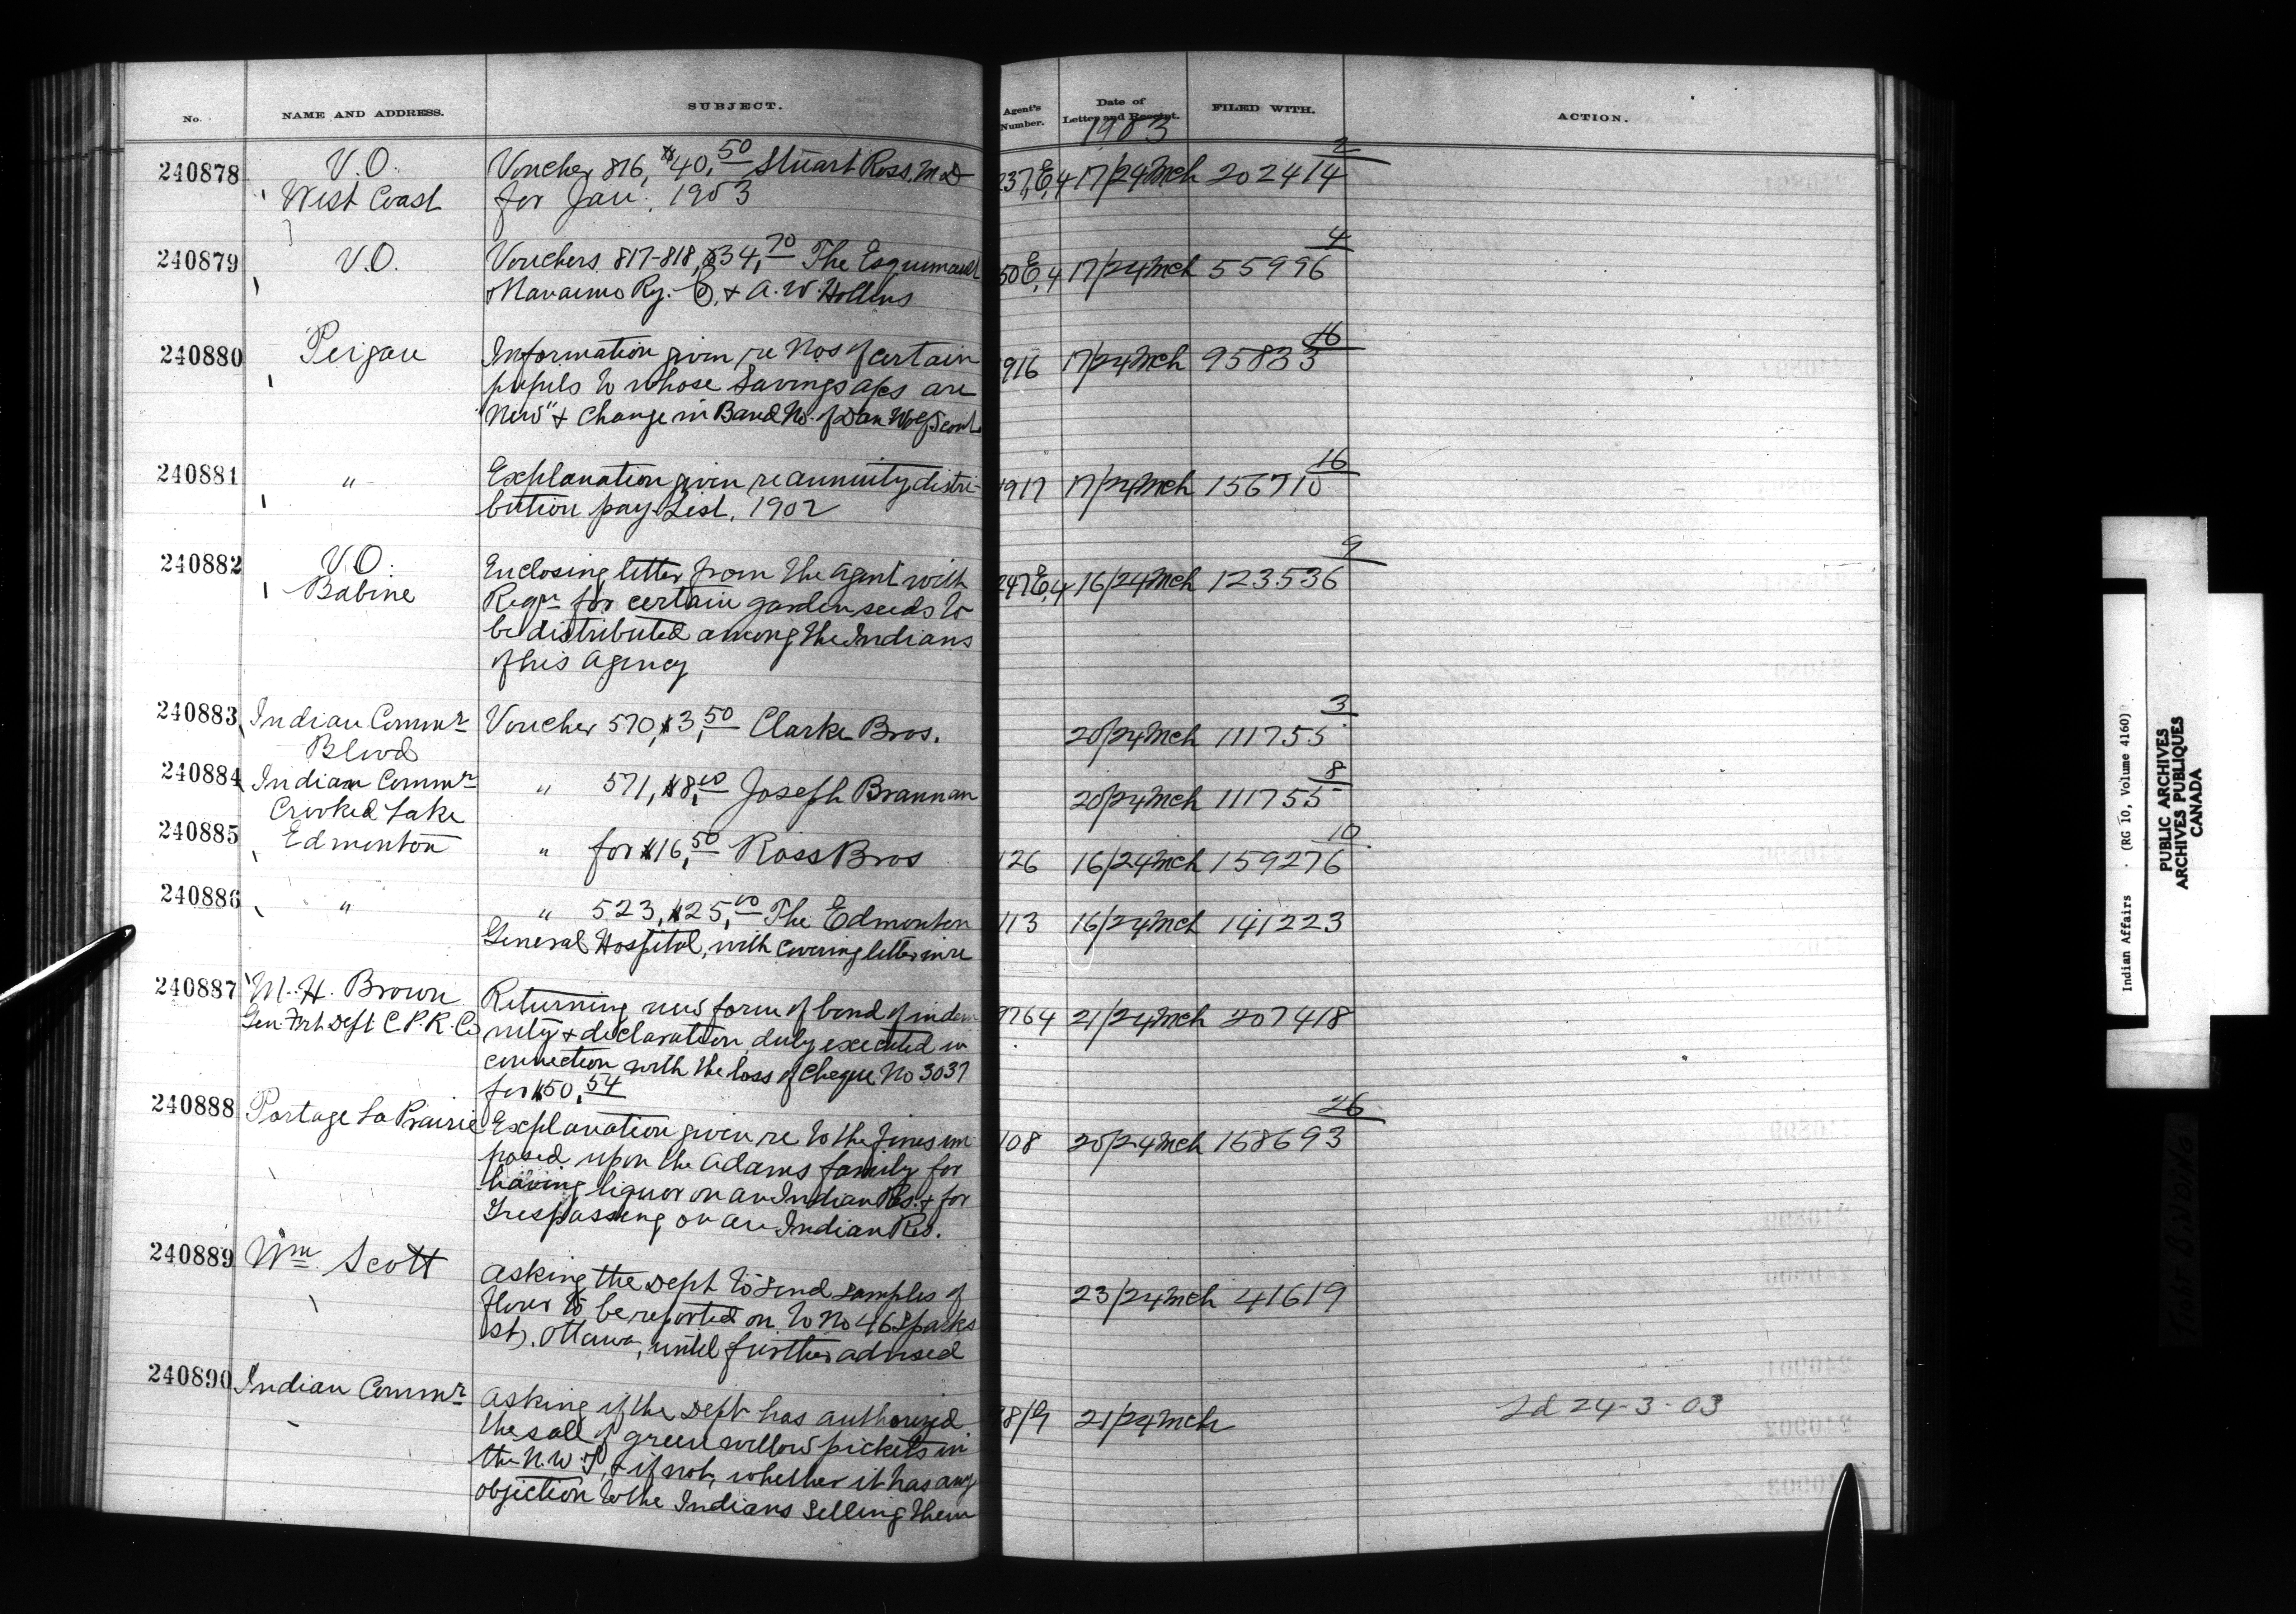 No. NAME AND ADDRESS. SUBJECT. Agent's Number. Date of Letter and Receipt. FILED WITH. ACTION.
1903
240878 V.O. Voucher 816, $40,50 Stuart Ross, M.D 237,E,4 17/24 Mch 202414 2
West Coast for Jan. 1903
240879 V.O. Vouchers 817-818, $34,70 The Esquimault 50 E,4 17/24 Mch 55996 4
Nanaimo Ry. Co, & A. W. Hollins
240880 Peigan Information given re Nos of certain 916 17/24 Mch 95833 16
pupils to whose savings a/cs are
"New" & change in Band No. of Dan Wolf, Scout.
240881 " Explanation given re annuity distri- 917 17/24 Mch 156710 16
bution pay List, 1902
240882 V.O. Enclosing letter from the Agent with 247 E,4 16/24 Mch 123536 9
Babine Reqn for certain garden seeds to
be distributed among the Indians
of his Agency
240883 Indian Commr Voucher 570, $3,50 Clarke Bros. 20/24 Mch 111755 3
Blwd
240884 Indian Commr " 571, $8,00 Joseph Brannan 20/24 Mch 111755 8
Crooked Lake
240885 Edmonton " for $16,50 Ross Bros 126 16/24 Mch 159276 10
240886 " " 523, $25,00 The Edmonton 113 16/24 Mch 141223
General Hospital, with covering letter in re
240887 M. H. Brown Returning new form of bond of indem 9764 21/24 Mch 207418
Gen. Frt Dept C.P.R. Co nity & declaration duly executed in
connection with the loss of Cheque No 3037
for $50,54
240888 Portage La Prairie Explanation given re to the fines im 108 20/24 Mch 168693 26
posed upon the Adams family for
having liquor on an Indian Res. & for
Trespassing on an Indian Res.
240889 Wm Scott Asking the Dept to send samples of 23/24 Mch 41619
flour to be reported on to No 46 Sparks
St, Ottawa, until further advised
240890 Indian Commr Asking if the Dept has authorized 21/24 Mch 24-3-03
the sale of green willow pickets in
the N.W.T, & if not, whether it has any
objection to the Indians selling them
Indian Affairs (RG 10, Volume 4160)
PUBLIC ARCHIVES
ARCHIVES PUBLIQUES
CANADA
TIGHT BINDING